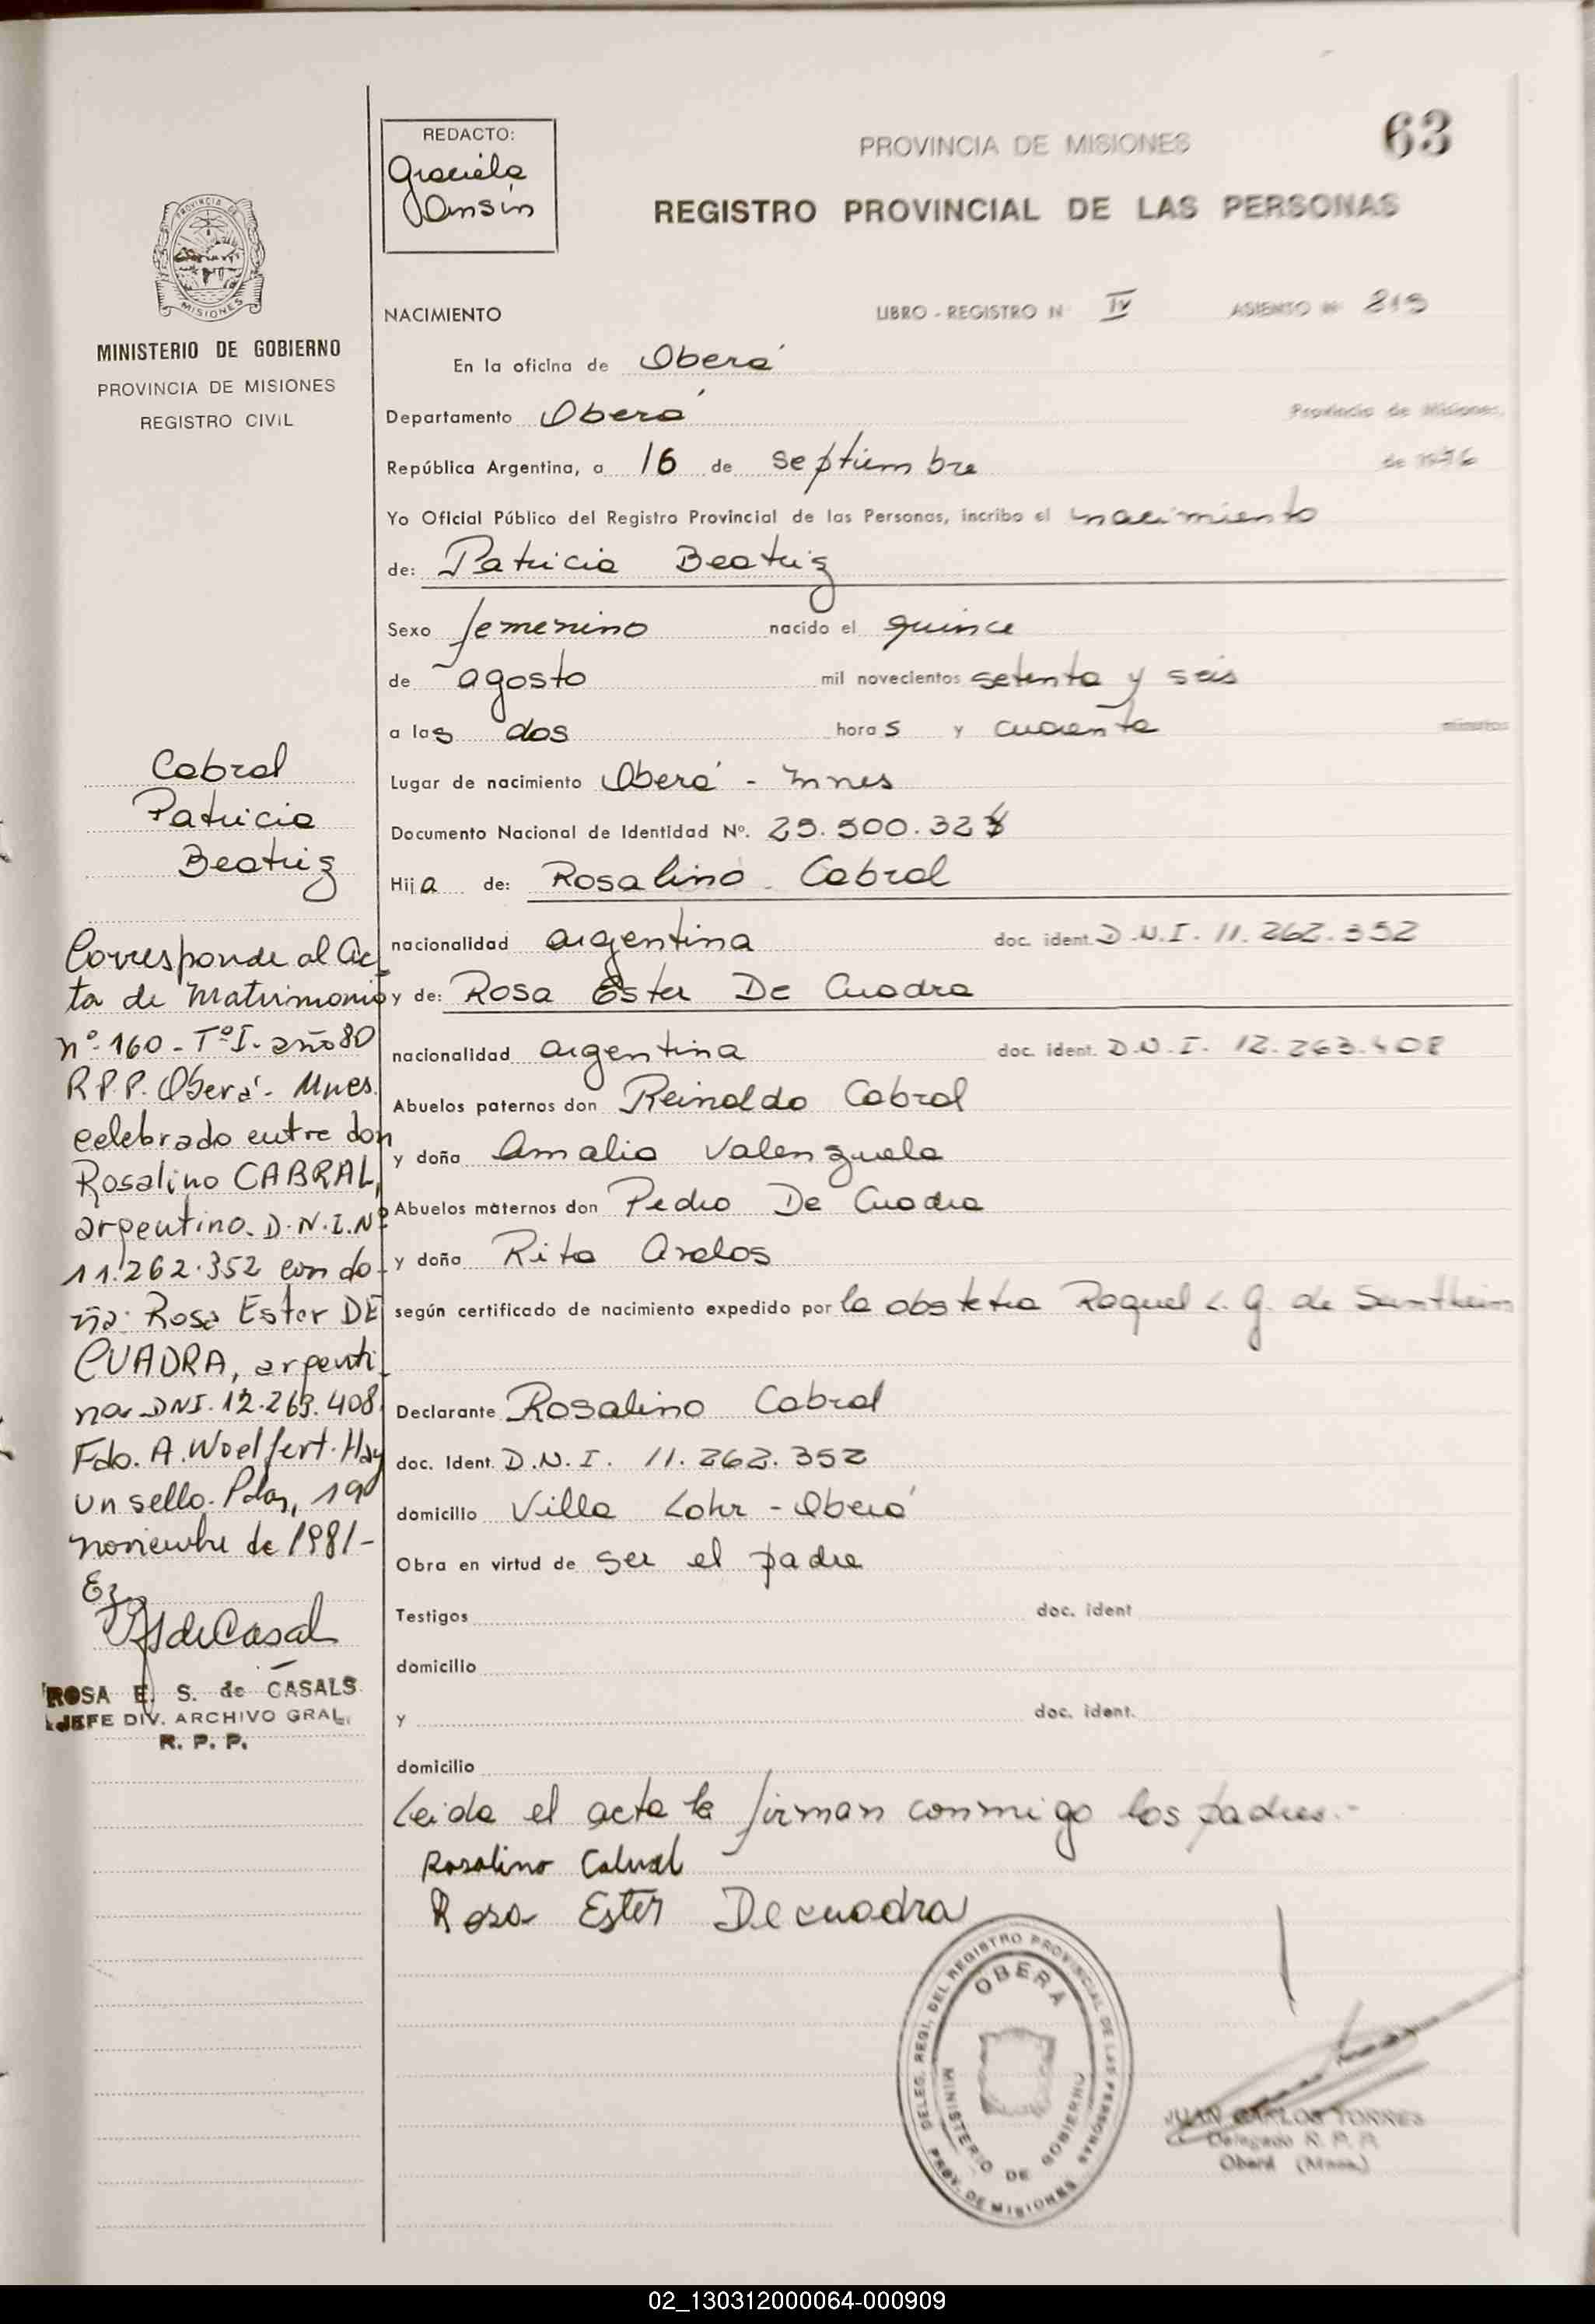 63
REDACTO:
Graciela
Ansin
PROVINCIA DE MISIONES
REGISTRO PROVINCIAL DE LAS PERSONAS
PROVINCIA DE
MISIONES
MINISTERIO DE GOBIERNO
PROVINCIA DE MISIONES
REGISTRO CIVIL
NACIMIENTO LIBRO - REGISTRO N IV ASIENTO Nº 819
En la oficina de Oberá
Departamento Oberá Provincia de Misiones,
República Argentina, a 16 de septiembre de 1976
Yo Oficial Público del Registro Provincial de las Personas, incribo el nacimiento
de: Patricia Beatriz
Sexo femenino nacido el quince
de agosto mil novecientos setenta y seis
a las dos horas y cuarenta minutos
Lugar de nacimiento Oberá - Mnes
Documento Nacional de Identidad Nº. 25.500.32
Hija de: Rosalino Cabral
nacionalidad argentina doc. ident. D.N.I. 11.262.352
y de: Rosa Ester De Cuadra
nacionalidad argentina doc. ident. D.N.I. 12.263.408
Abuelos paternos don Reinaldo Cabral
y doña Amalia Valenzuela
Abuelos maternos don Pedro De Cuadra
y doña Rita Avalos
según certificado de nacimiento expedido por la obstetra Raquel L. G. de
Declarante Rosalino Cabral
doc. Ident. D.N.I. 11.262.352
domicilio Villa Lohr - Oberá
Obra en virtud de ser el padre
Testigos doc. ident
domicilio
y doc. ident.
domicilio
Leida el acta la firman conmigo los padres.-
Rosalino Cabral
Rosa Ester Decuadra
Cabral
Patricia
Beatriz
Corresponde al Ac-
ta de Matrimonio
nº 160 - Tº I. año 80
R.P.P. Oberá - Mnes.
celebrado entre don
Rosalino CABRAL,
argentino. D.N.I. Nº
11.262.352 con do-
ña: Rosa Ester DE
CUADRA, argenti-
na DNI. 12.263.408
Fdo. A. Woelfert. Hay
un sello. Pdas, 19
noviembre de 1981-
de Casal
ROSA E. S. de CASALS
JEFE DIV. ARCHIVO GRAL.
R. P. P.
DELEG. REGI. DEL REGISTRO PROVINCIAL DE LAS PERSONAS
OBERA
MINISTERIO DE GOBIERNO
PROV. DE MISIONES
JUAN CARLOS TORRES
Delegado R. P. P.
Oberá (Mnes.)
02_130312000064-000909